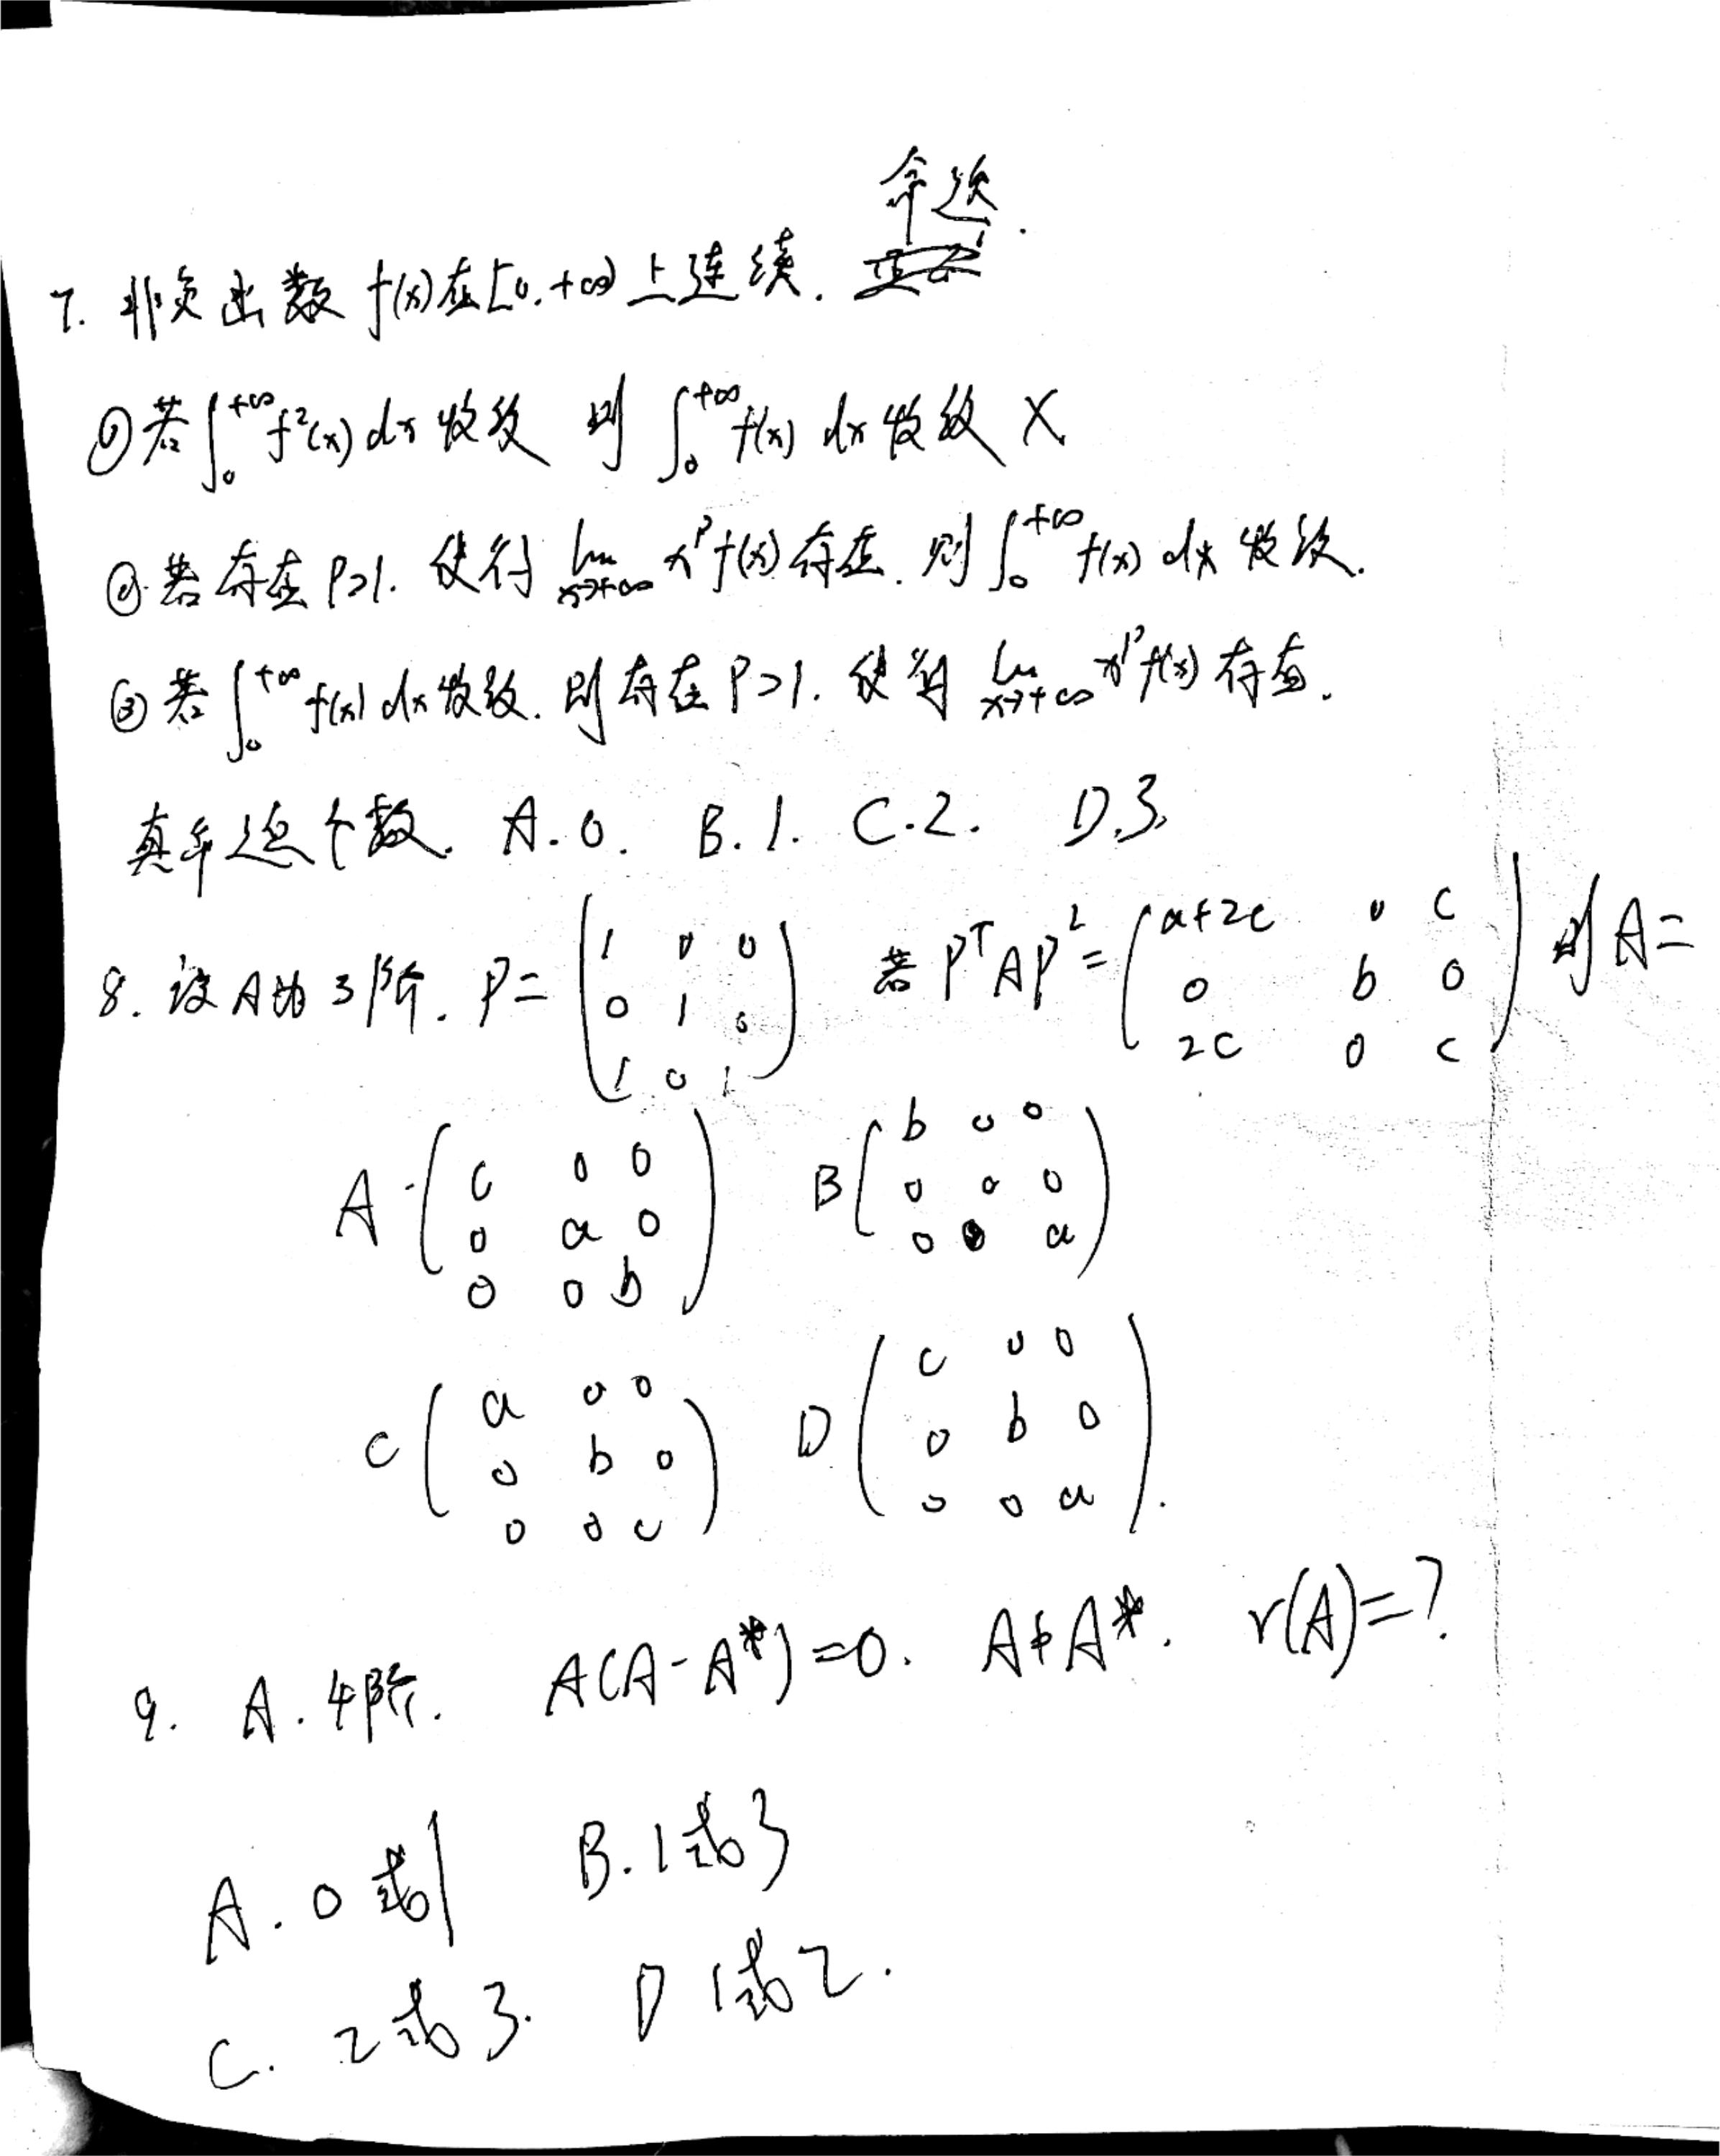 命题.
7. 非负函数 f(x)在[0,+∞)上连续.
①若∫₀^{+∞} f²(x) dx 收敛 则 ∫₀^{+∞} f(x) dx 收敛 X
②若存在 P>1. 使得 lim_{x→+∞} x^p f(x) 存在. 则 ∫₀^{+∞} f(x) dx 收敛.
③若 ∫₀^{+∞} f(x) dx 收敛. 则存在 P>1. 使得 lim_{x→+∞} x^p f(x) 存在.
真命题个数. A.0. B.1. C.2. D.3.
8. 设A为3阶. P= (1 0 0; 0 1 0; 1 0 1) 若 PᵀAP²= (a+2c 0 c; 0 b 0; 2c 0 c) 则A=
A. (c 0 0; 0 a 0; 0 0 b) B (b 0 0; 0 0 0; 0 0 a)
C (a 0 0; 0 b 0; 0 0 c) D (c 0 0; 0 b 0; 0 0 a).
9. A. 4阶. A(A-A*)=0. A≠A*. r(A)=?
A. 0或1 B. 1或3
C. 2或3. D 1或2.